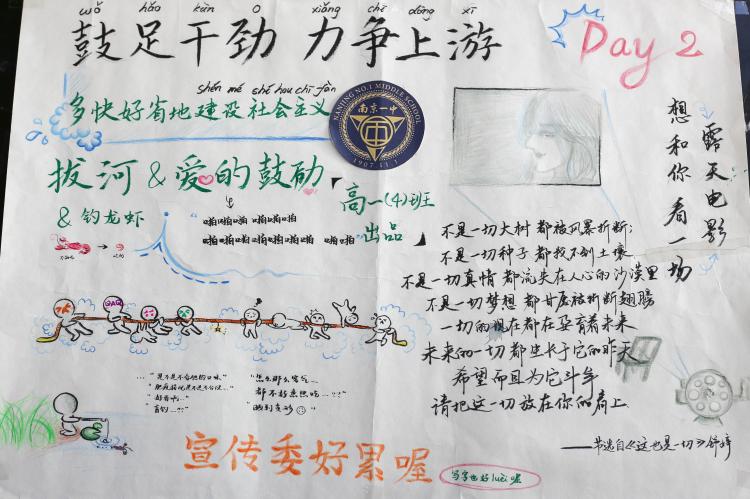 wǒ hǎo kùn o xiǎng chī dōng xī
鼓足干劲 力争上游
Day 2
shén mé shé hou chī fàn
多快好省地建设社会主义
NANJING NO.1 MIDDLE SCHOOL
南京一中
1907.11.1
拔河&爱的鼓励
高一(4)班
出品
& 钓龙虾
啪啪 啪啪啪
啪啪啪啪 啪啪
想和你看一场
露天电影
不是一切大树都被风暴折断;
不是一切种子都找不到土壤
不是一切真情都流失在人心的沙漠里
不是一切梦想都甘愿被折断翅膀
一切的现在都在孕育着未来
未来的一切都生长于它的昨天
希望而且为它斗争
请把这一切放在你的肩上
——节选自《这也是一切》舒婷
宣传委好累喔
写字也好luèi喔